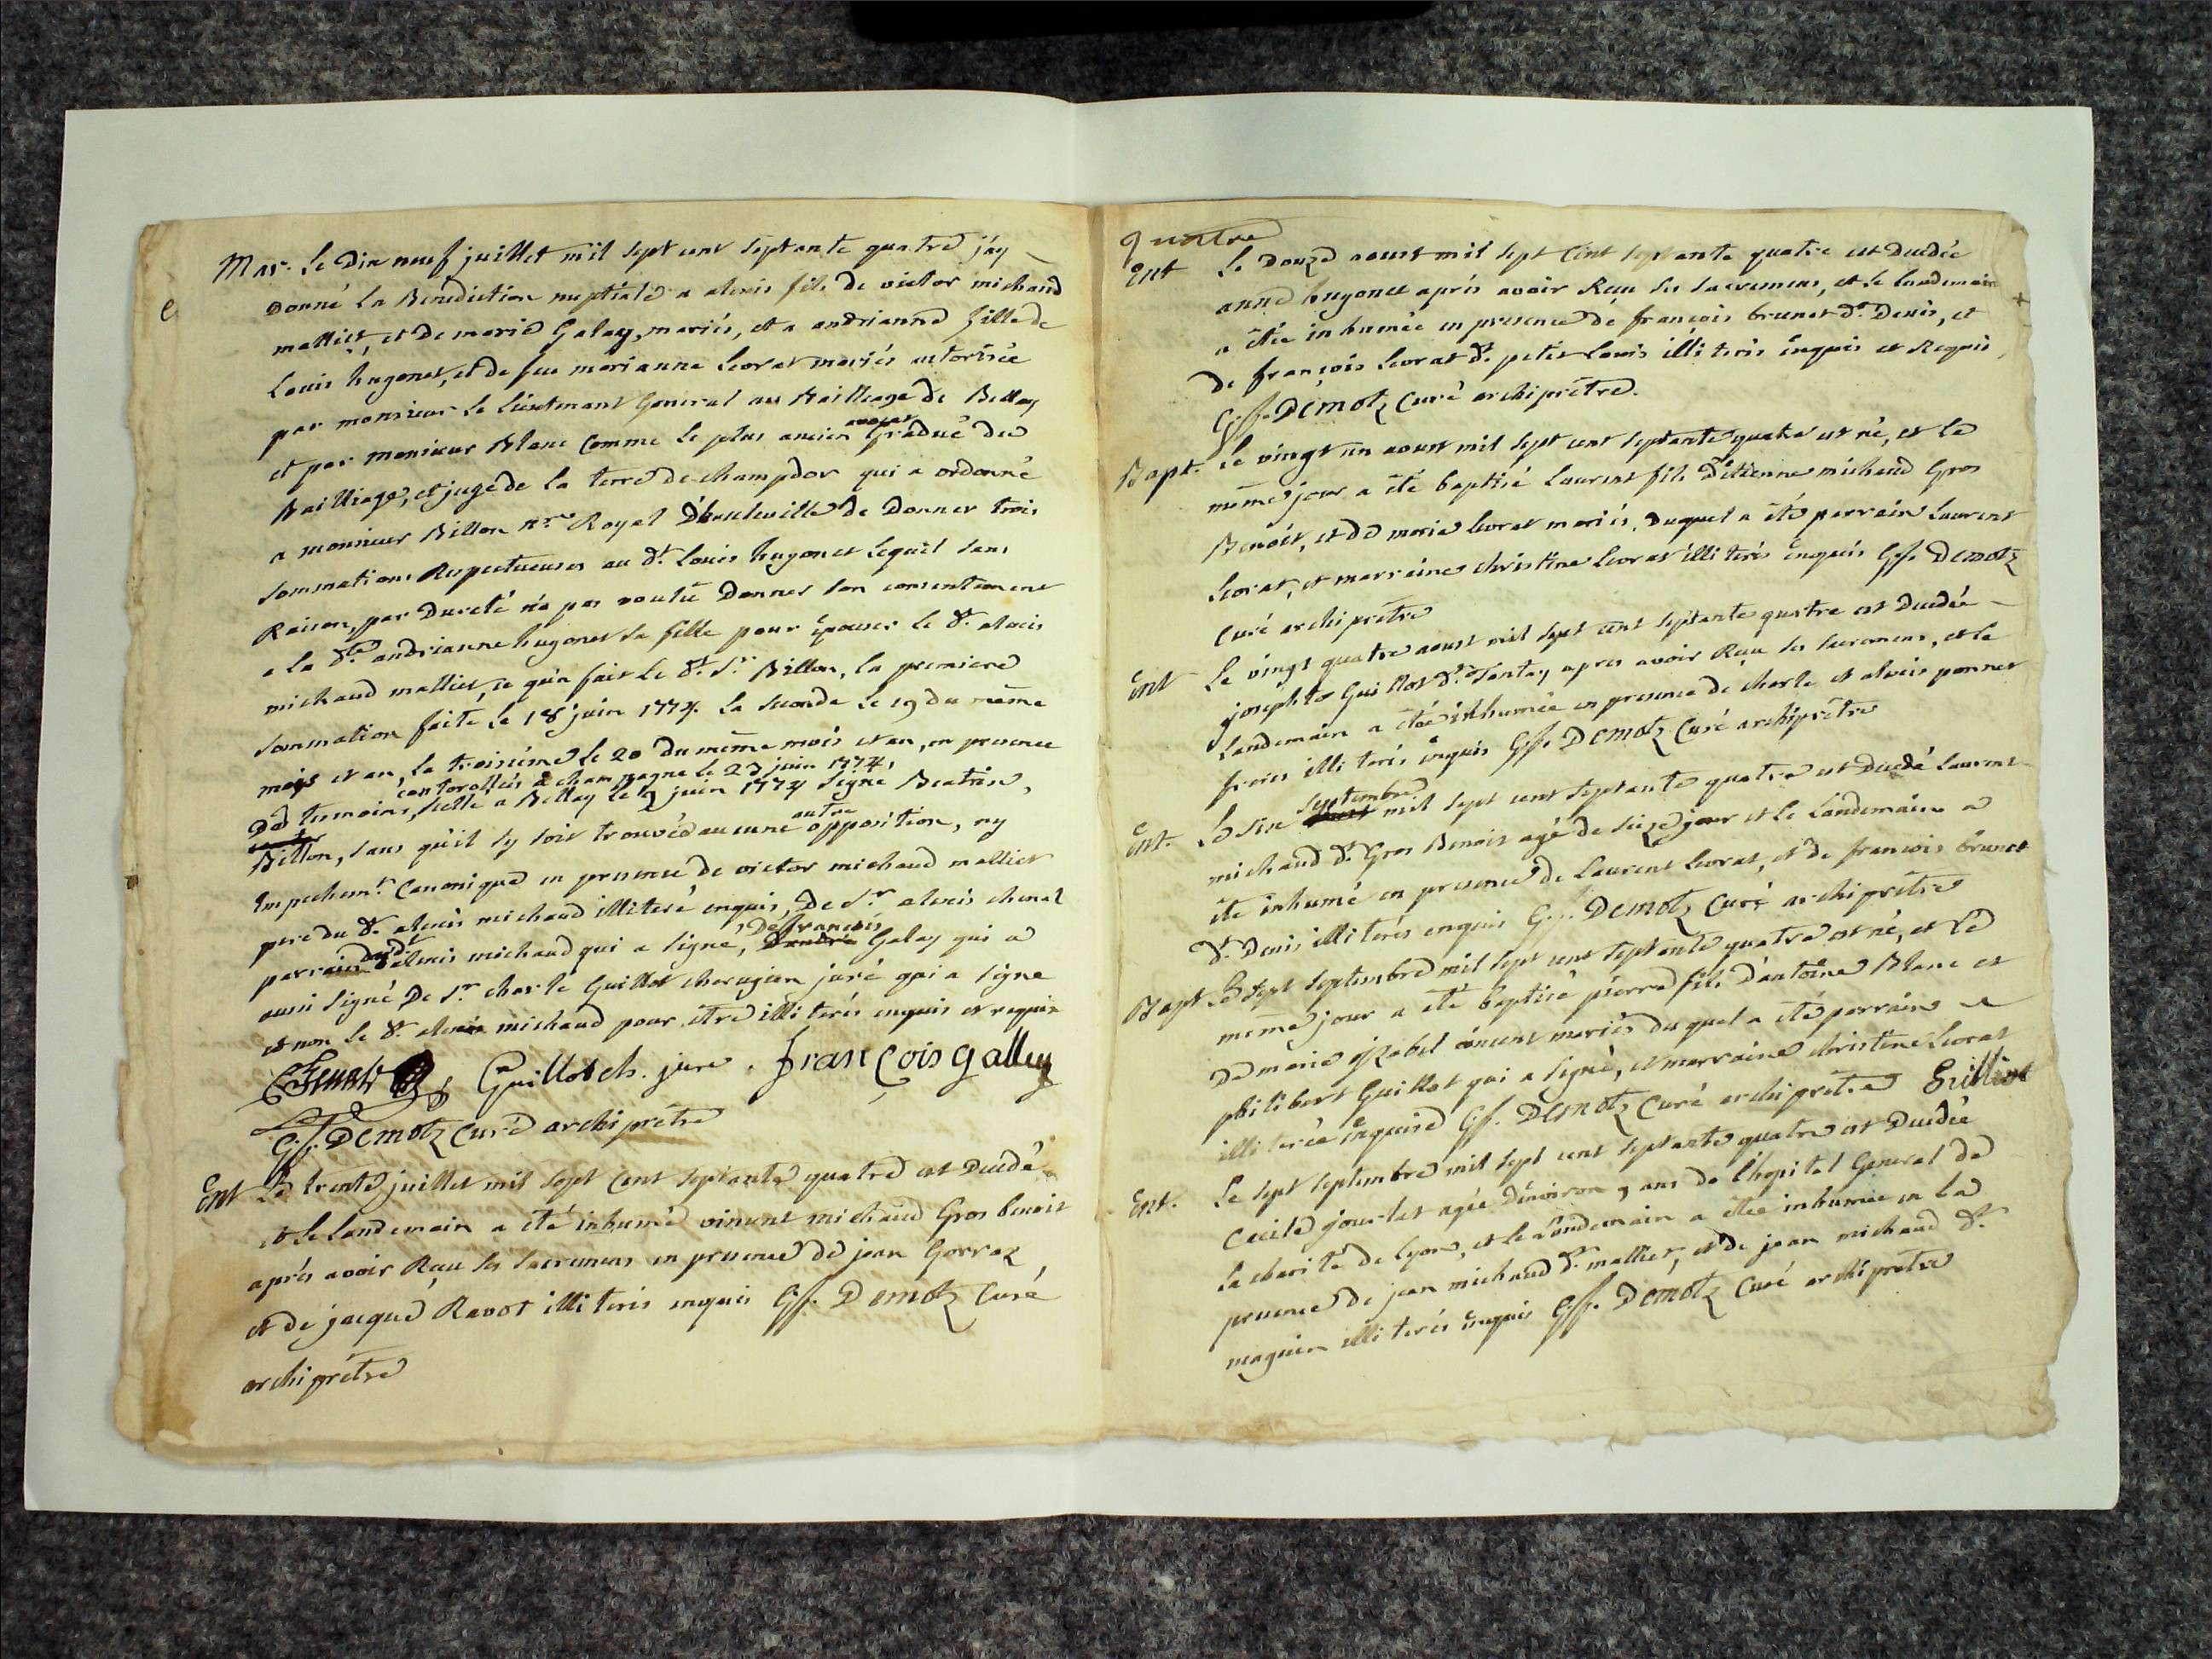 Mar. Le Dix neuf juillet mil sept cent septante quatre j'ay
Donné La Benediction nuptiale a alexis fils de victor michaud
malliet, et de marie Galay, mariés, et a andrianne fille de
Louis hugonet, et de feue marianne Levrat mariés autorisée
par monsieur Le Lieutenant General au Bailliage de Bellay
et par monsieur Blanc Comme Le plus ancien avocat Gradué du
Bailliage, et juge de La terre de champdor qui a ordonné
a monsieur Billon nre Royal D'hauteville de Donner trois
sommations Respectueuses au dt. Louis hugonet Lequel sans
Raison, par Dureté n'a pas voulu Donner son consentement
a La dte andrianne hugonet sa fille pour épouser Le dt. alexis
michaud malliet, ce qu'a fait Le dt. Sr. Billon, La premiere
sommation faite Le 18 juin 1774. La seconde Le 19 du même
mois et an, La troisième Le 20 du même mois et an, en presence
controllées a champagne le 23 juin 1774,
De temoins, scellé a Bellay Le 9 juin 1774 signé Beatrise,
Billon, sans qu'il sy soit trouvé aucune autre opposition, ny
Empechemt. Canonique en presence de victor michaud malliet
pere du dt. alexis michaud illiteré enquis, De Sr alexis chenal
parrain dudt alexis michaud qui a signé, De françois Galay qui a
aussi signé De Sr. charle Guillot cherugien juré qui a signé
et non le dt. alexis michaud pour etre illiterés enquis et requis
Guillot ch. juré. françois galley
G.f. Demotz Curé archiprêtre
Ent Le trente juillet mil sept cent septante quatre est Decedé
et Le Landemain a été inhumé vincent michaud Gros benoit
aprés avoir Reçu les sacremens en presence de jean Gorraz,
et de jacque Ravot illiterés enquis G.f. Demotz Curé
archiprêtre
quatre
Ent Le Douze aoust mil sept Cent septante quatre est Decedée
anne hugonet aprés avoir Reçu les sacremens, et le Landemain
a étée inhumée en presence de françois brunet dt. Denis, et
de françois Levrat dt. petit Louis illiterés enquis et Requis
G.f. Demotz Curé archiprêtre.
Bapt. Le vingt un aoust mil sept cent septante quatre est né, et le
même jour a été baptisé Laurent fils D'étienne michaud Gros
Benoit, et de marie Levrat mariés, Duquel a été parrain Laurent
Levrat, et marraine christine Levrat illiterés enquis G.f. Demotz
Curé archiprêtre
Ent Le vingt quatre aoust mil sept cent septante quatre est Decedée
josephte Guillot dt. Santay apres avoir Reçu les sacremens, et le
Landemain a étée inhumée en presence de charle et alexis ponnet
freres illiterés enquis G.f. Demotz Curé archiprêtre
Ent. Le six septembre mil sept cent septante quatre est Decedé Laurent
michaud dt. Gros Benoit agé de seize jour et le Landemain a
été inhumé en presence de Laurent Levrat, et de francois brunet
dt. Denis illiterés enquis G.f. Demotz Curé archiprêtre
Bapt Le sept septembre mil sept cent septante quatre est né, et le
même jour a été baptisé pierre fils d'antoine Blanc et
De marie izabel ancent mariés duquel a été parrain
philibert Guillot qui a signé, et marraine christine Levrat
illiterée enquise G.f. Demotz Curé archiprêtre Guilliot
Ent. Le sept septembre mil sept cent septante quatre est Decedée
Cecile jourlet agée D'environ 9 ans de L'hopital General de
La charité de Lyon, et le Landemain a étée inhumée en La
presence de jean michaud dt. malliet, et de jean michaud dt.
magnin illiterés enquis G.f. Demotz Curé archiprêtre